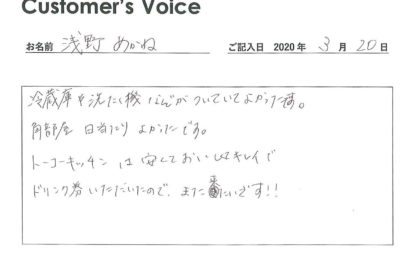 Customer's Voice
お名前 浅野 めかね ご記入日 2020年 3月 20日
冷蔵庫や洗たく機なんかついていてよかったす。
角部屋 日当たり よかったです。
トーコーキッチン は 安くておいしくてキレイで
ドリンク券いただいたので、また来たいです!!